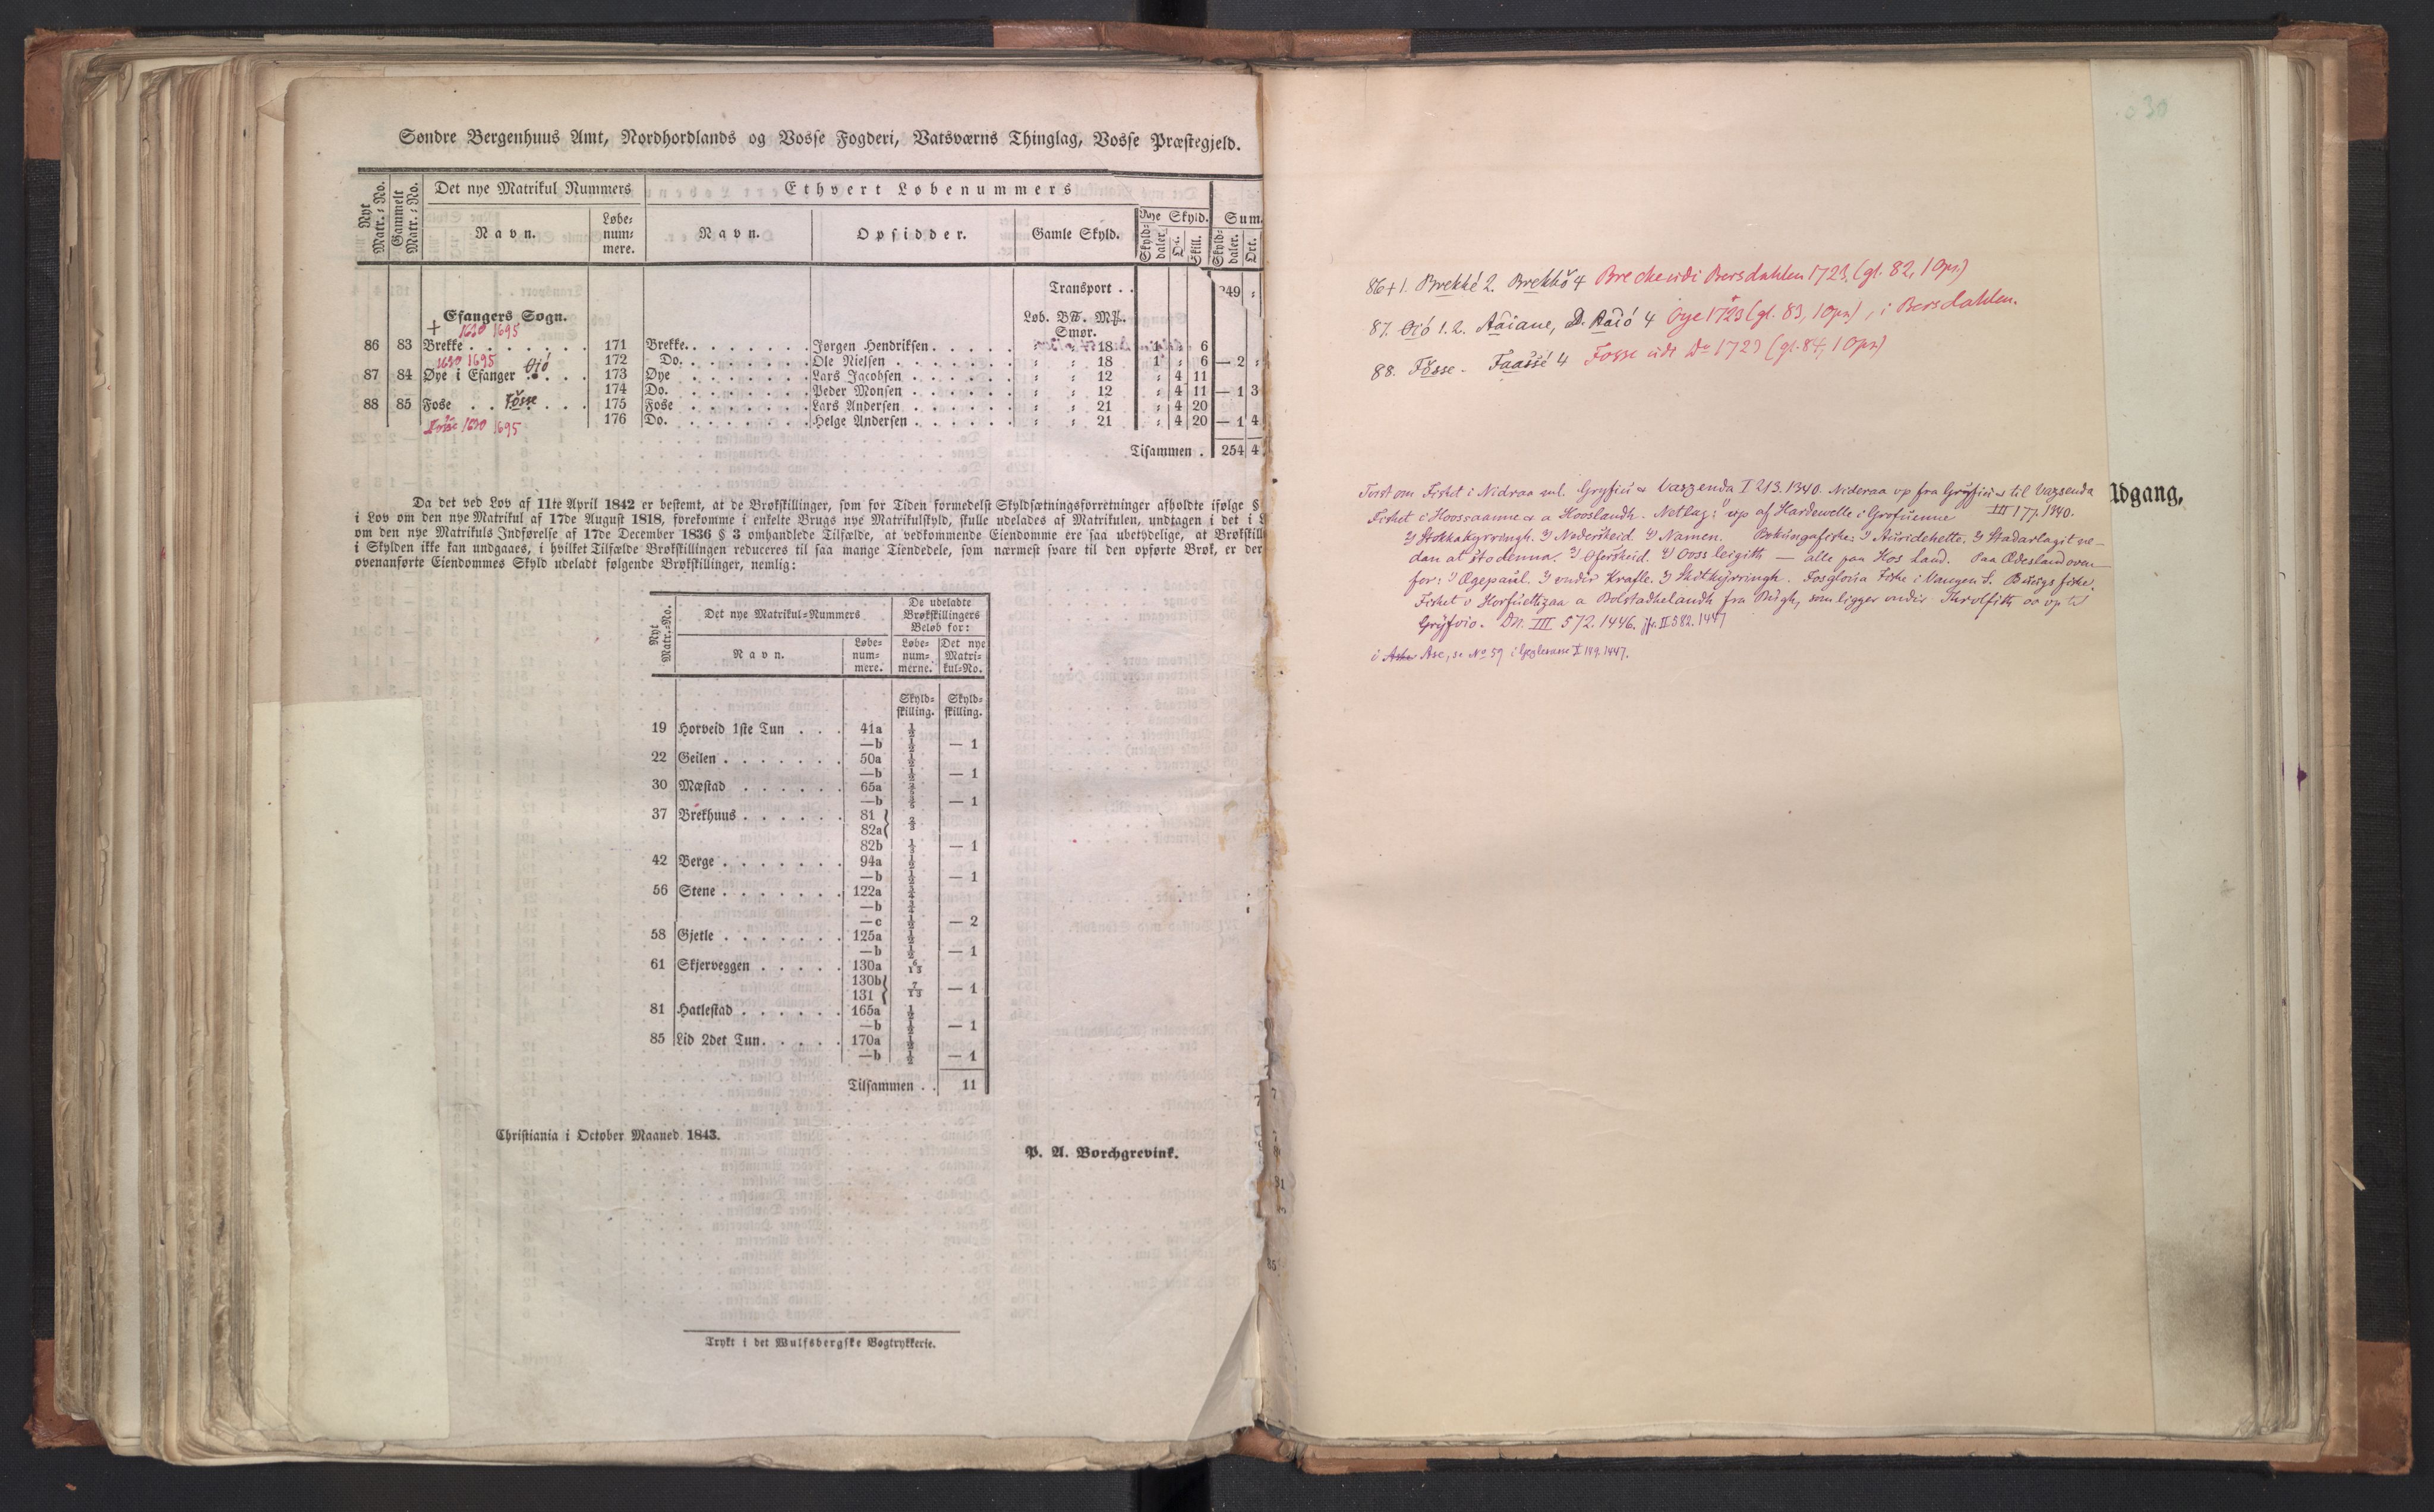 Søndre Bergenhuus Amt, Nordhordlands og Vosse Fogderi, Vatsværns Thinglag, Vosse Præstegjeld.
Nyt Matr.-No.
Gammelt Matr.-No.
Det nye Matrikul Nummers
Ethvert Løbenummers
Navn.
Løbe-
num-
mere.
Navn.
Opsidder.
Gamle Skyld.
Nye Skyld.
Sum
Skyld-
daler.
Ort.
Skill.
Skyld-
daler.
Ort.
Transport . . 249 :
Efangers Sogn.
Løb. B℔. M℔.
Smør.
+ 1630 1695
86 83 Brekke . . . 171 Brekke. . . . Jørgen Hendriksen . . . : : 18 1 : 6
1630 1695 172 Do. . . . Ole Nielsen . . . : : 18 1 : 6 — 2 :
87 84 Øye i Efanger Øió . . 173 Øye . . . Lars Jacobsen . . . : : 12 : 4 11
174 Do. . . . Peder Monsen . . . : : 12 : 4 11 — 1 3
88 85 Fose . . Fósse . . . 175 Fose . . . Lars Andersen . . . : : 21 : 4 20
1630 1695 176 Do. . . . Helge Andersen . . . : : 21 : 4 20 — 1 4
Tilsammen . 254 4
Da det ved Lov af 11te April 1842 er bestemt, at de Brøkskillinger, som for Tiden formedelst Skyldsætningsforretninger afholdte ifølge §
i Lov om den nye Matrikul af 17de August 1818, forekomme i enkelte Brugs nye Matrikulskyld, skulle udelades af Matrikulen, undtagen i det i
om den nye Matrikuls Indførelse af 17de December 1836 § 3 omhandlede Tilfælde, at vedkommende Eiendomme ere saa ubetydelige, at Brøkskill
i Skylden ikke kan undgaaes, i hvilket Tilfælde Brøkskillingen reduceres til saa mange Tiendedele, som nærmest svare til den opførte Brøk, er der
ovenanførte Eiendommes Skyld udeladt følgende Brøkskillinger, nemlig:
Nyt Matr.-No.
Det nye Matrikul-Nummers
De udeladte
Brøkskillingers
Beløb for:
Navn.
Løbe-
num-
mere.
Løbe-
num-
merne.
Det nye
Matri-
kul-No.
Skyld-
skilling.
Skyld-
skilling.
19 Horveid 1ste Tun . . . 41a ½
—b ½ — 1
22 Geilen . . . 50a ½
—b ½ — 1
30 Mæstad . . . 65a
—b — 1
37 Brekhuus . . . 81
82a ⅔
82b ⅓ — 1
42 Berge . . . 94a ½
—b ½ — 1
56 Stene . . . 122a
—b
—c ½ — 2
58 Gjetle . . . 125a ½
—b ½ — 1
61 Skjerveggen . . . 130a 6/13
130b
131 7/13 — 1
81 Hatlestad . . . 165a ½
—b ½ — 1
85 Lid 2det Tun . . . 170a ½
—b ½ — 1
Tilsammen . . 11
Christiania i October Maaned 1843.
P. A. Borchgrevink.
Trykt i det Wulfsbergske Bogtrykkerie.
30
86+1. Brekké 2. Brekkó 4 Brecke udi Bersdahlen 1723. (gl. 82, 1 Ops.)
87. Øió 1.2. Åäiane, D. Åäió 4 Øye 1723 (gl. 83, 1 Ops), i Bersdahlen.
88. Fósse - Faassé 4 Fosse udi Do 1723 (gl. 84, 1 Ops)
Adgang,
Tvist om Fisket i Nidraa ml. Gryfiu & Vaszenda I 213. 1340. Nideraa op fra Gryfiu til Vazsenda
III 177. 1340.
Fisket i Hoossaanne a Hooslandh. Notlag: op af Hardewelle i Grofuenne
J Stokkakyrringh. J Nedersheid. J Namen. J Auridehette. J Stadarlagit ne-
dan at Stodenna. J Ofersheid. J Ooss leigith — alle paa Hos Land. Paa Ødesland oven-
for: J Øgepaul. J vndir Krafle. J Skitkyrringh. Fosgloua Fiske i Vangen S.
Fisket i a Bolstadhelandh fra Bugh, som ligger vndir Throlfith oc op til
Gryfvio. Dn. III 572. 1446. jfr. II 582. 1447
i Ase, se No 59 I 149. 1447.